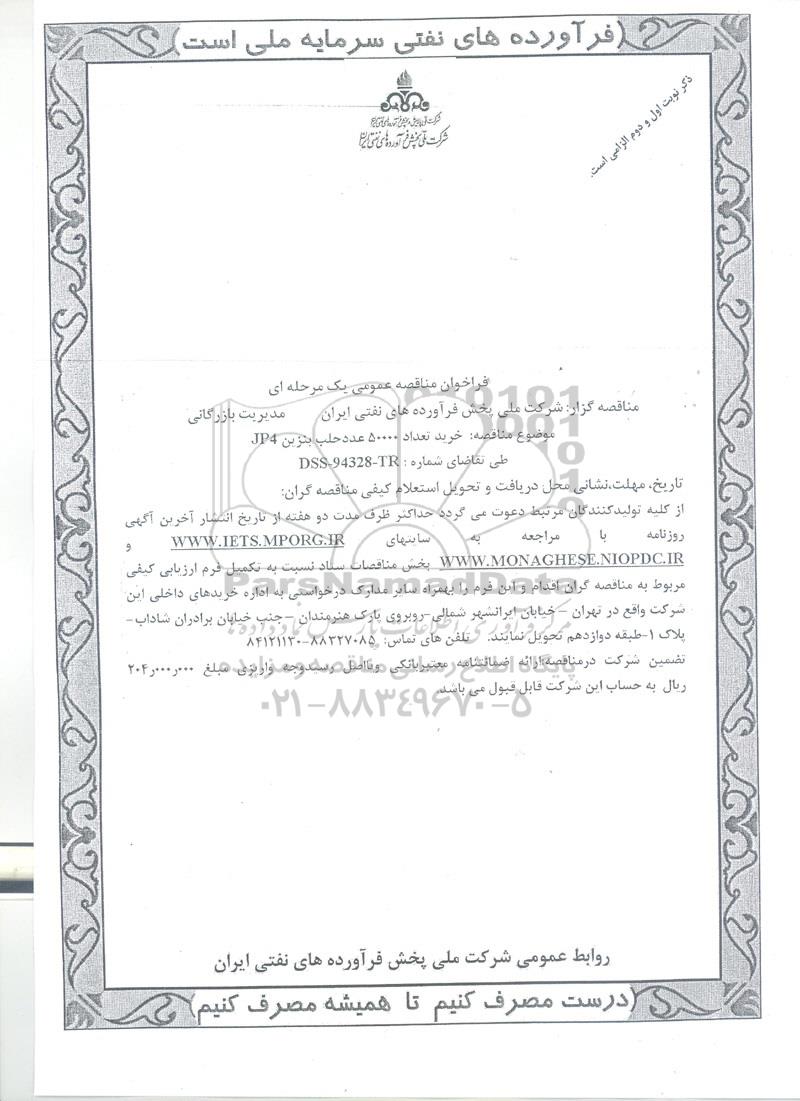 (فرآورده های نفتی سرمایه ملی است)
ذکر نوبت اول و دوم الزامی است.
شرکت ملی پالایش و پخش فرآورده های نفتی ایران
شرکت ملی پخش فرآورده های نفتی ایران
فراخوان مناقصه عمومی یک مرحله ای
مناقصه گزار: شرکت ملی پخش فرآورده های نفتی ایران مدیریت بازرگانی
موضوع مناقصه: خرید تعداد ۵۰۰۰۰ عددحلب بنزین JP4
طی تقاضای شماره : DSS-94328-TR
تاریخ، مهلت،نشانی محل دریافت و تحویل استعلام کیفی مناقصه گران:
از کلیه تولیدکنندگان مرتبط دعوت می گردد حداکثر ظرف مدت دو هفته از تاریخ انتشار آخرین آگهی
روزنامه با مراجعه به سایتهای WWW.IETS.MPORG.IR و
WWW.MONAGHESE.NIOPDC.IR پخش مناقصات ستاد نسبت به تکمیل فرم ارزیابی کیفی
مربوط به مناقصه گران اقدام و این فرم را بهمراه سایر مدارک درخواستی به اداره خریدهای داخلی این
شرکت واقع در تهران – خیابان ایرانشهر شمالی-روبروی پارک هنرمندان –جنب خیابان برادران شاداب-
پلاک ۱-طبقه دوازدهم تحویل نمایند. تلفن های تماس: ۸۸۳۲۷۰۸۵-۸۴۱۲۱۱۳۰
تضمین شرکت درمناقصه:ارائه ضمانتنامه معتبربانکی ویااصل رسیدوجه واریزی مبلغ ۲۰۴٫۰۰۰٫۰۰۰
ریال به حساب این شرکت قابل قبول می باشد.
ParsNamadData
مرکز فرآوری اطلاعات پارس نماد داده ها
پایگاه اطلاع رسانی مناقصه و مزایده
۰۲۱-۸۸۳۴۹۶۷۰-۵
روابط عمومی شرکت ملی پخش فرآورده های نفتی ایران
(درست مصرف کنیم تا همیشه مصرف کنیم)